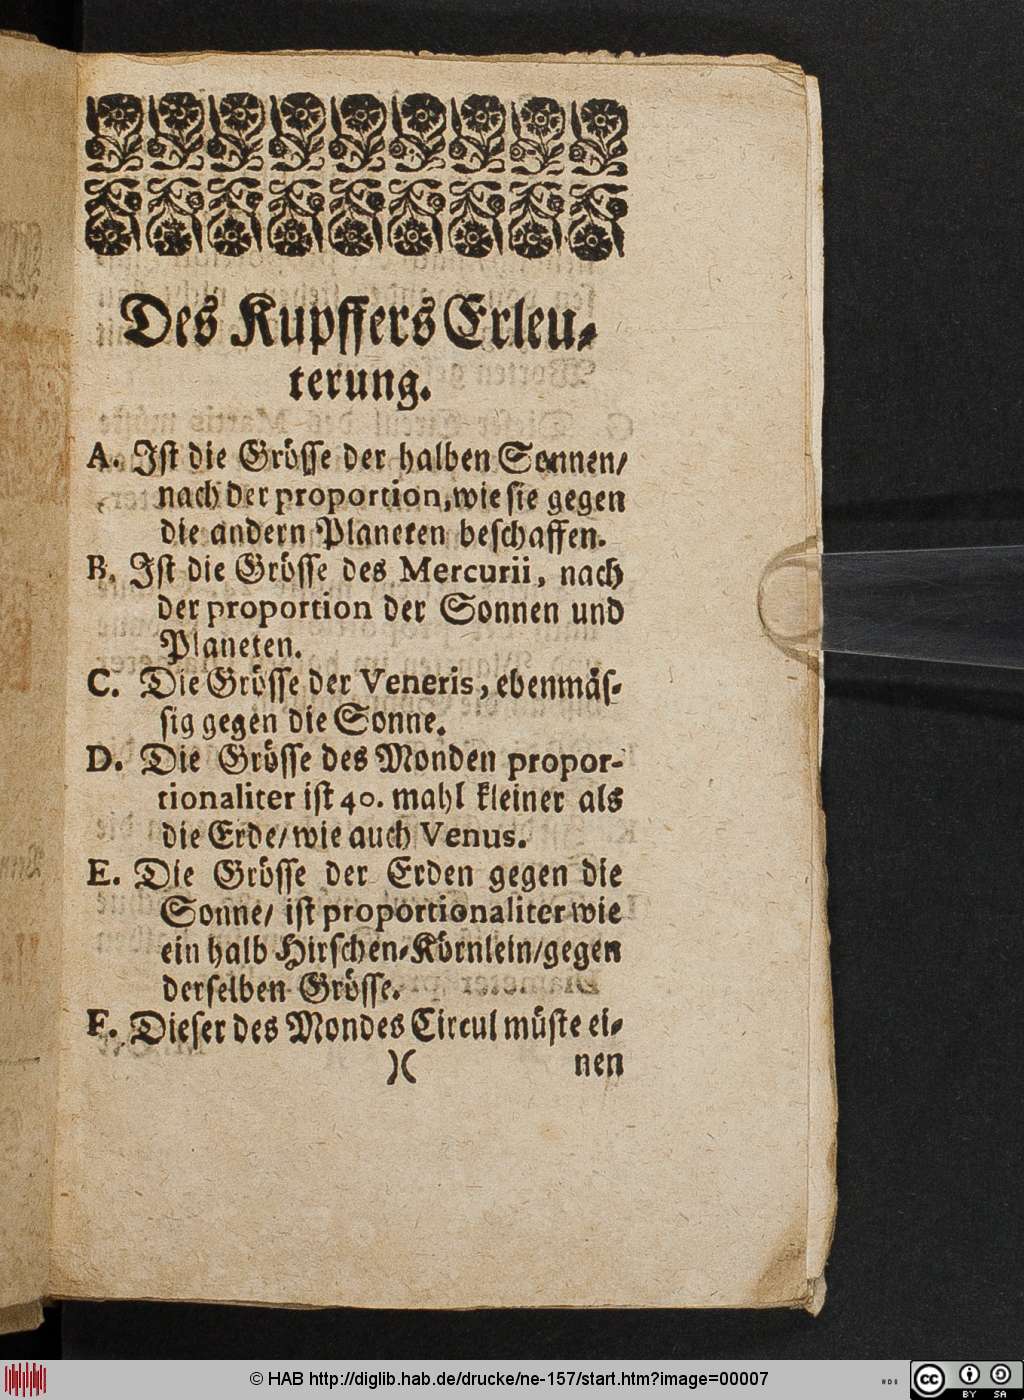 Des Kupffers Erleu-
terung.
A. Ist die Grösse der halben Sonnen/
nach der proportion, wie sie gegen
die andern Planeten beschaffen.
B. Ist die Grösse des Mercurii, nach
der proportion der Sonnen und
Planeten.
C. Die Grösse der Veneris, ebenmäs-
sig gegen die Sonne.
D. Die Grösse des Monden propor-
tionaliter ist 40. mahl kleiner als
die Erde/ wie auch Venus.
E. Die Grösse der Erden gegen die
Sonne/ ist proportionaliter wie
ein halb Hirschen-Körnlein/gegen
derselben Grösse.
F. Dieser des Mondes Circul müste ei-
)( nen
© HAB http://diglib.hab.de/drucke/ne-157/start.htm?image=00007
cc BY SA